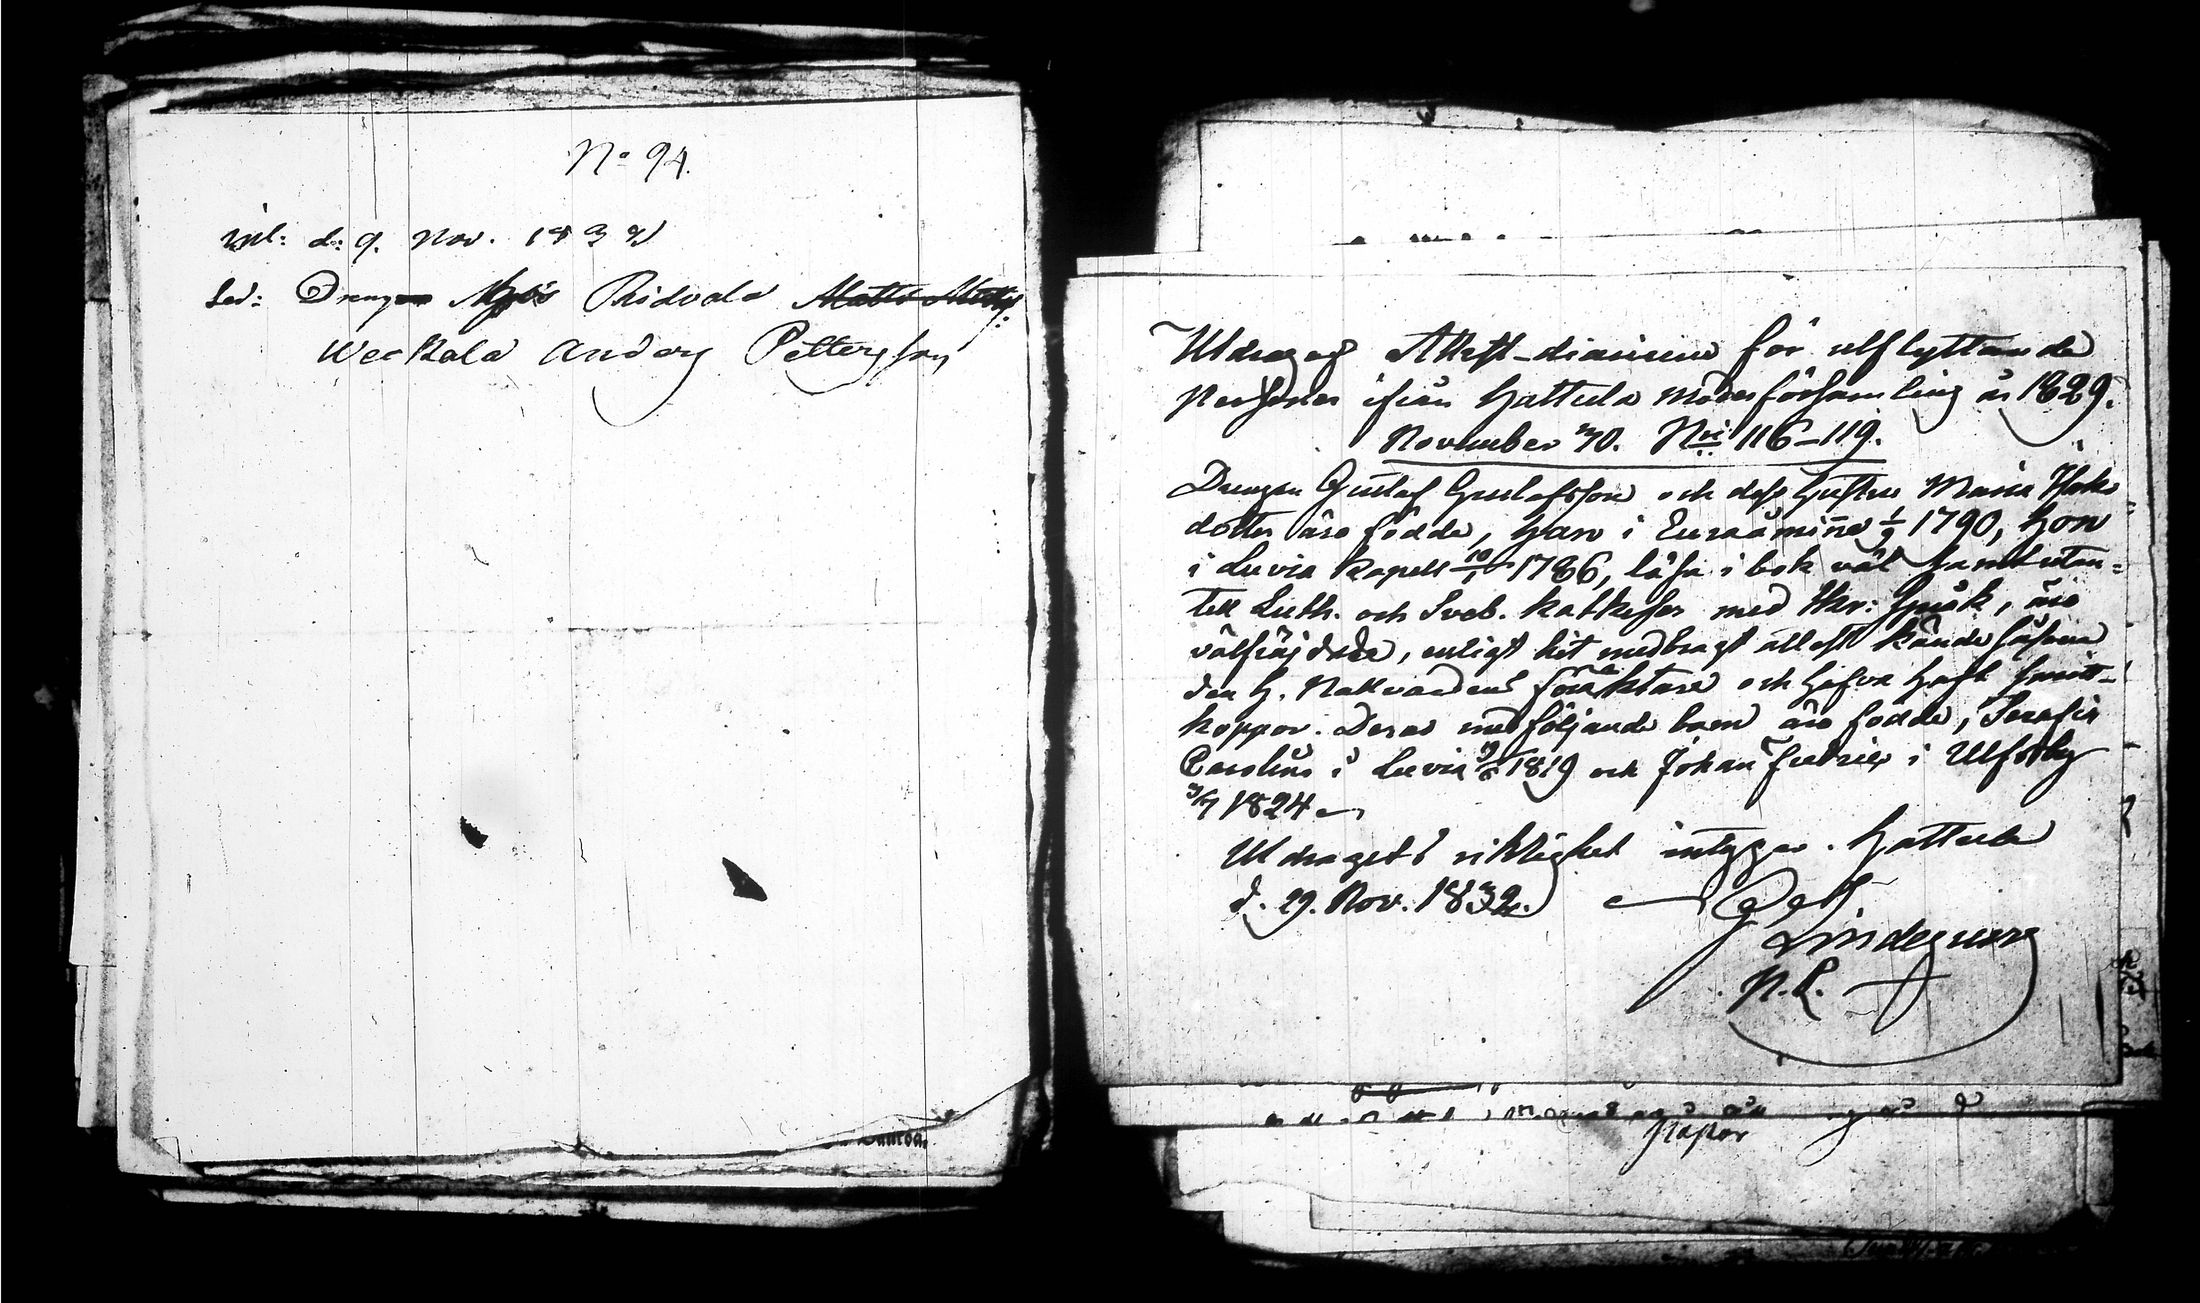 No 94.
inl: d: 9. Nov. 1832
Led: Drengen Ridvala
Weckala Anders Pettersson
Utdrag af Attest-diarium för utflyttande
personer ifrån Hattula moderförsamling år 1829.
November 30. Nri 116–119.
Drengen Gustaf Gustafsson och dess hustru Maria Isaks
dotter äro födde, han i Euraåminne 1/9 1790, hon
i Luvia kapell 10/1 1786, läsa i bok väl samt utan-
till Luth. och Sveb. katkeser med Hkr: språk, äro
välfräjdade, enligt hit medbragt attest kände
den H. Nattvardens föraktare och hafva haft
koppor. Deras medföljande barn äro födde, Serafia
Carolina i Luvia 1819 och Johan Fredric i Ulfsby
3/7 1824
Utdragets riktighet intygar. Hattula
d. 29. Nov. 1832.
Lindegren
N.P.